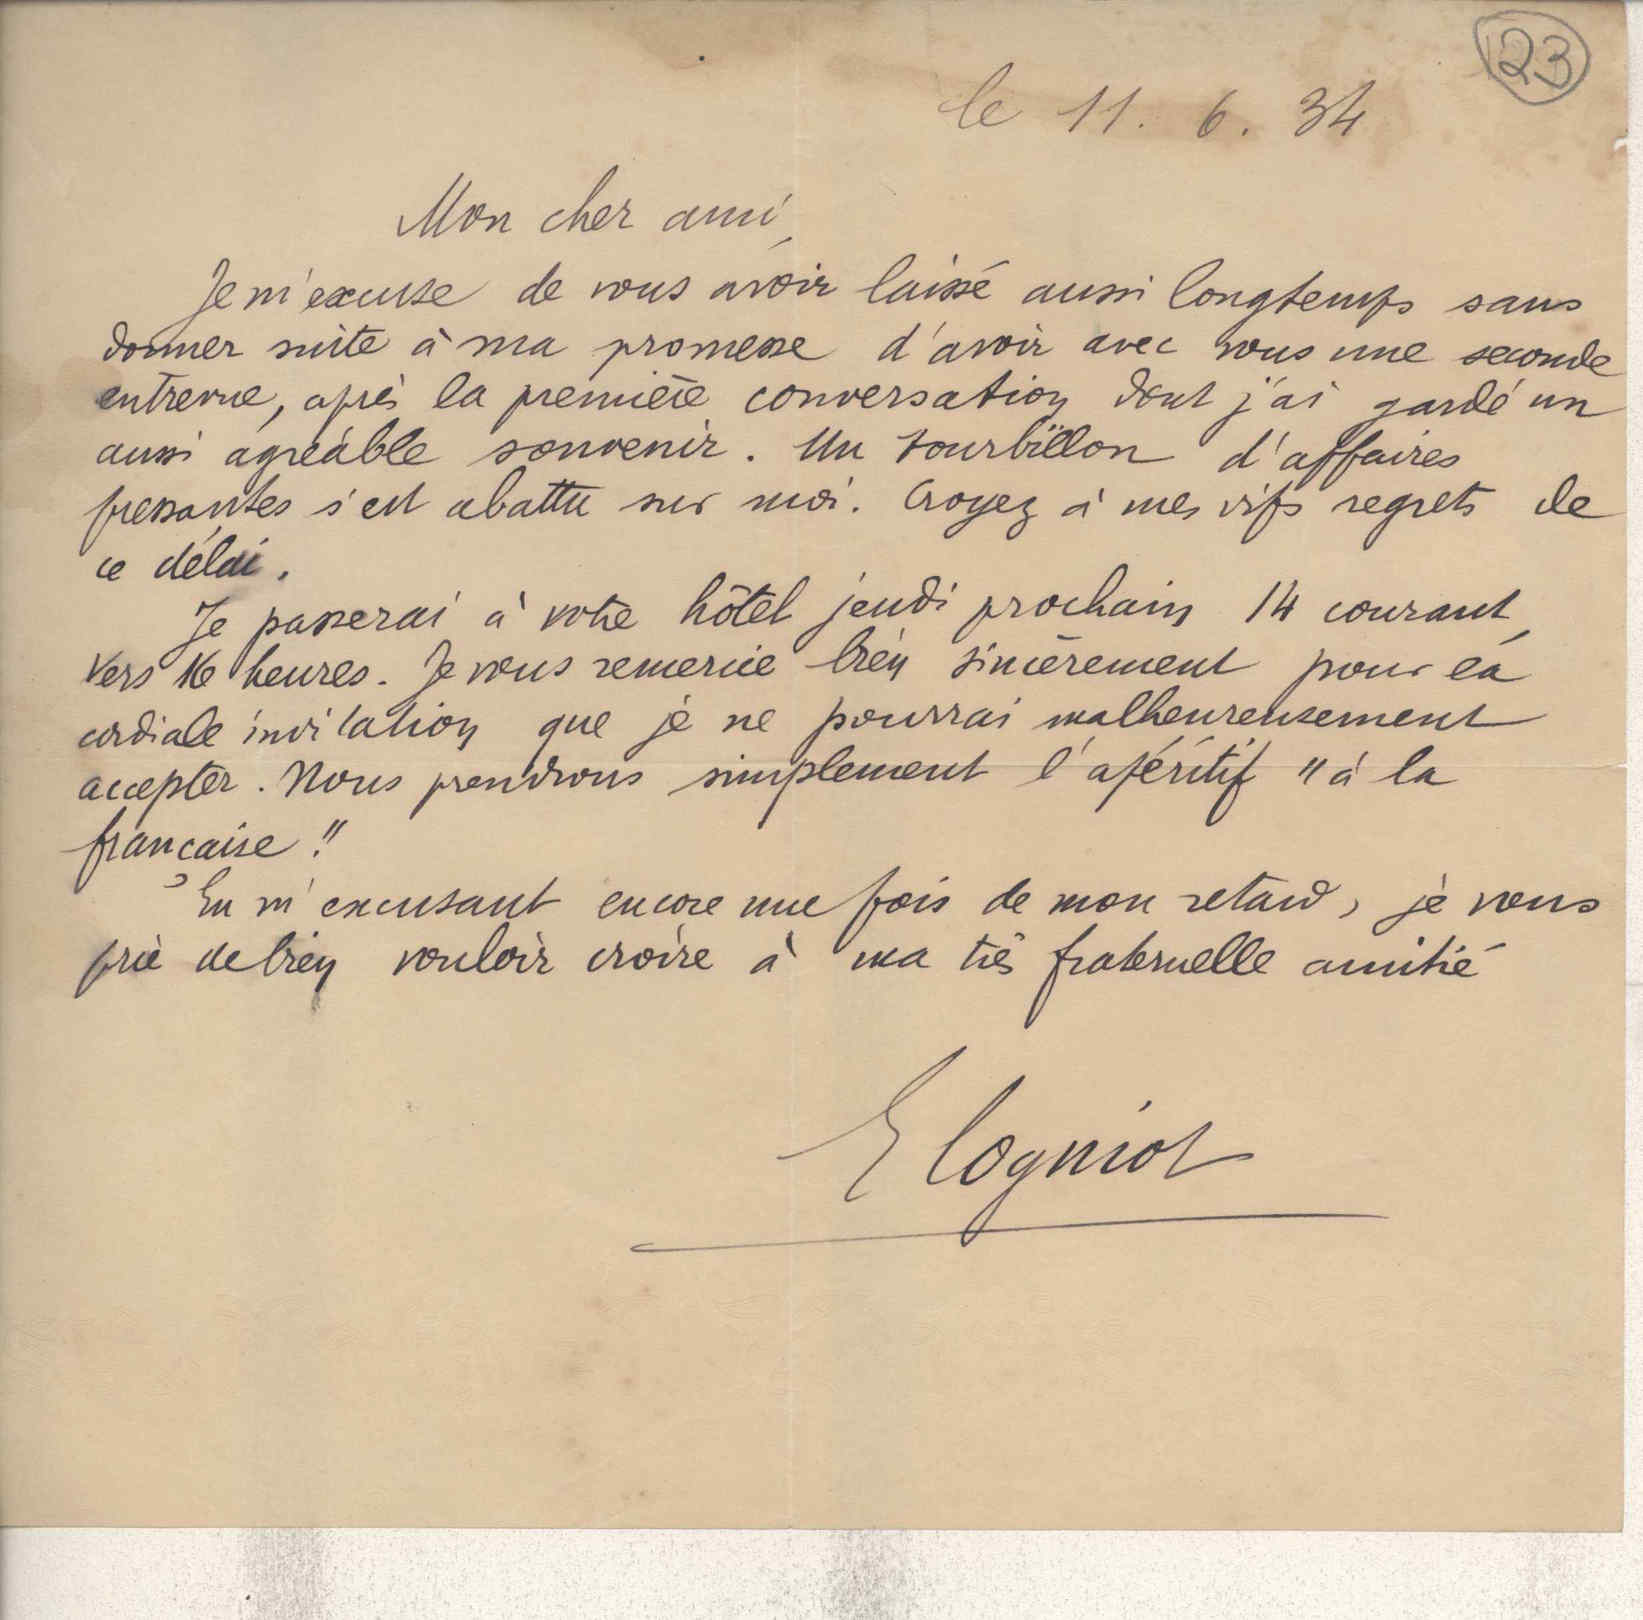 23
le 11. 6. 34
Mon cher ami,
Je m'excuse de vous avoir laissé aussi longtemps sans
donner suite à ma promesse d'avoir avec vous une seconde
entrevue, après la première conversation dont j'ai gardé un
aussi agréable souvenir. Un tourbillon d'affaires
pressantes s'est abattu sur moi. Croyez à mes vifs regrets de
ce délai.
Je passerai à votre hôtel jeudi prochain 14 courant,
vers 16 heures. Je vous remercie bien sincèrement pour la
cordiale invitation que je ne pourrai malheureusement
accepter. Nous prendrons simplement l'apéritif "à la
française".
En m'excusant encore une fois de mon retard, je vous
prie de bien vouloir croire à ma très fraternelle amitié
G Cogniot